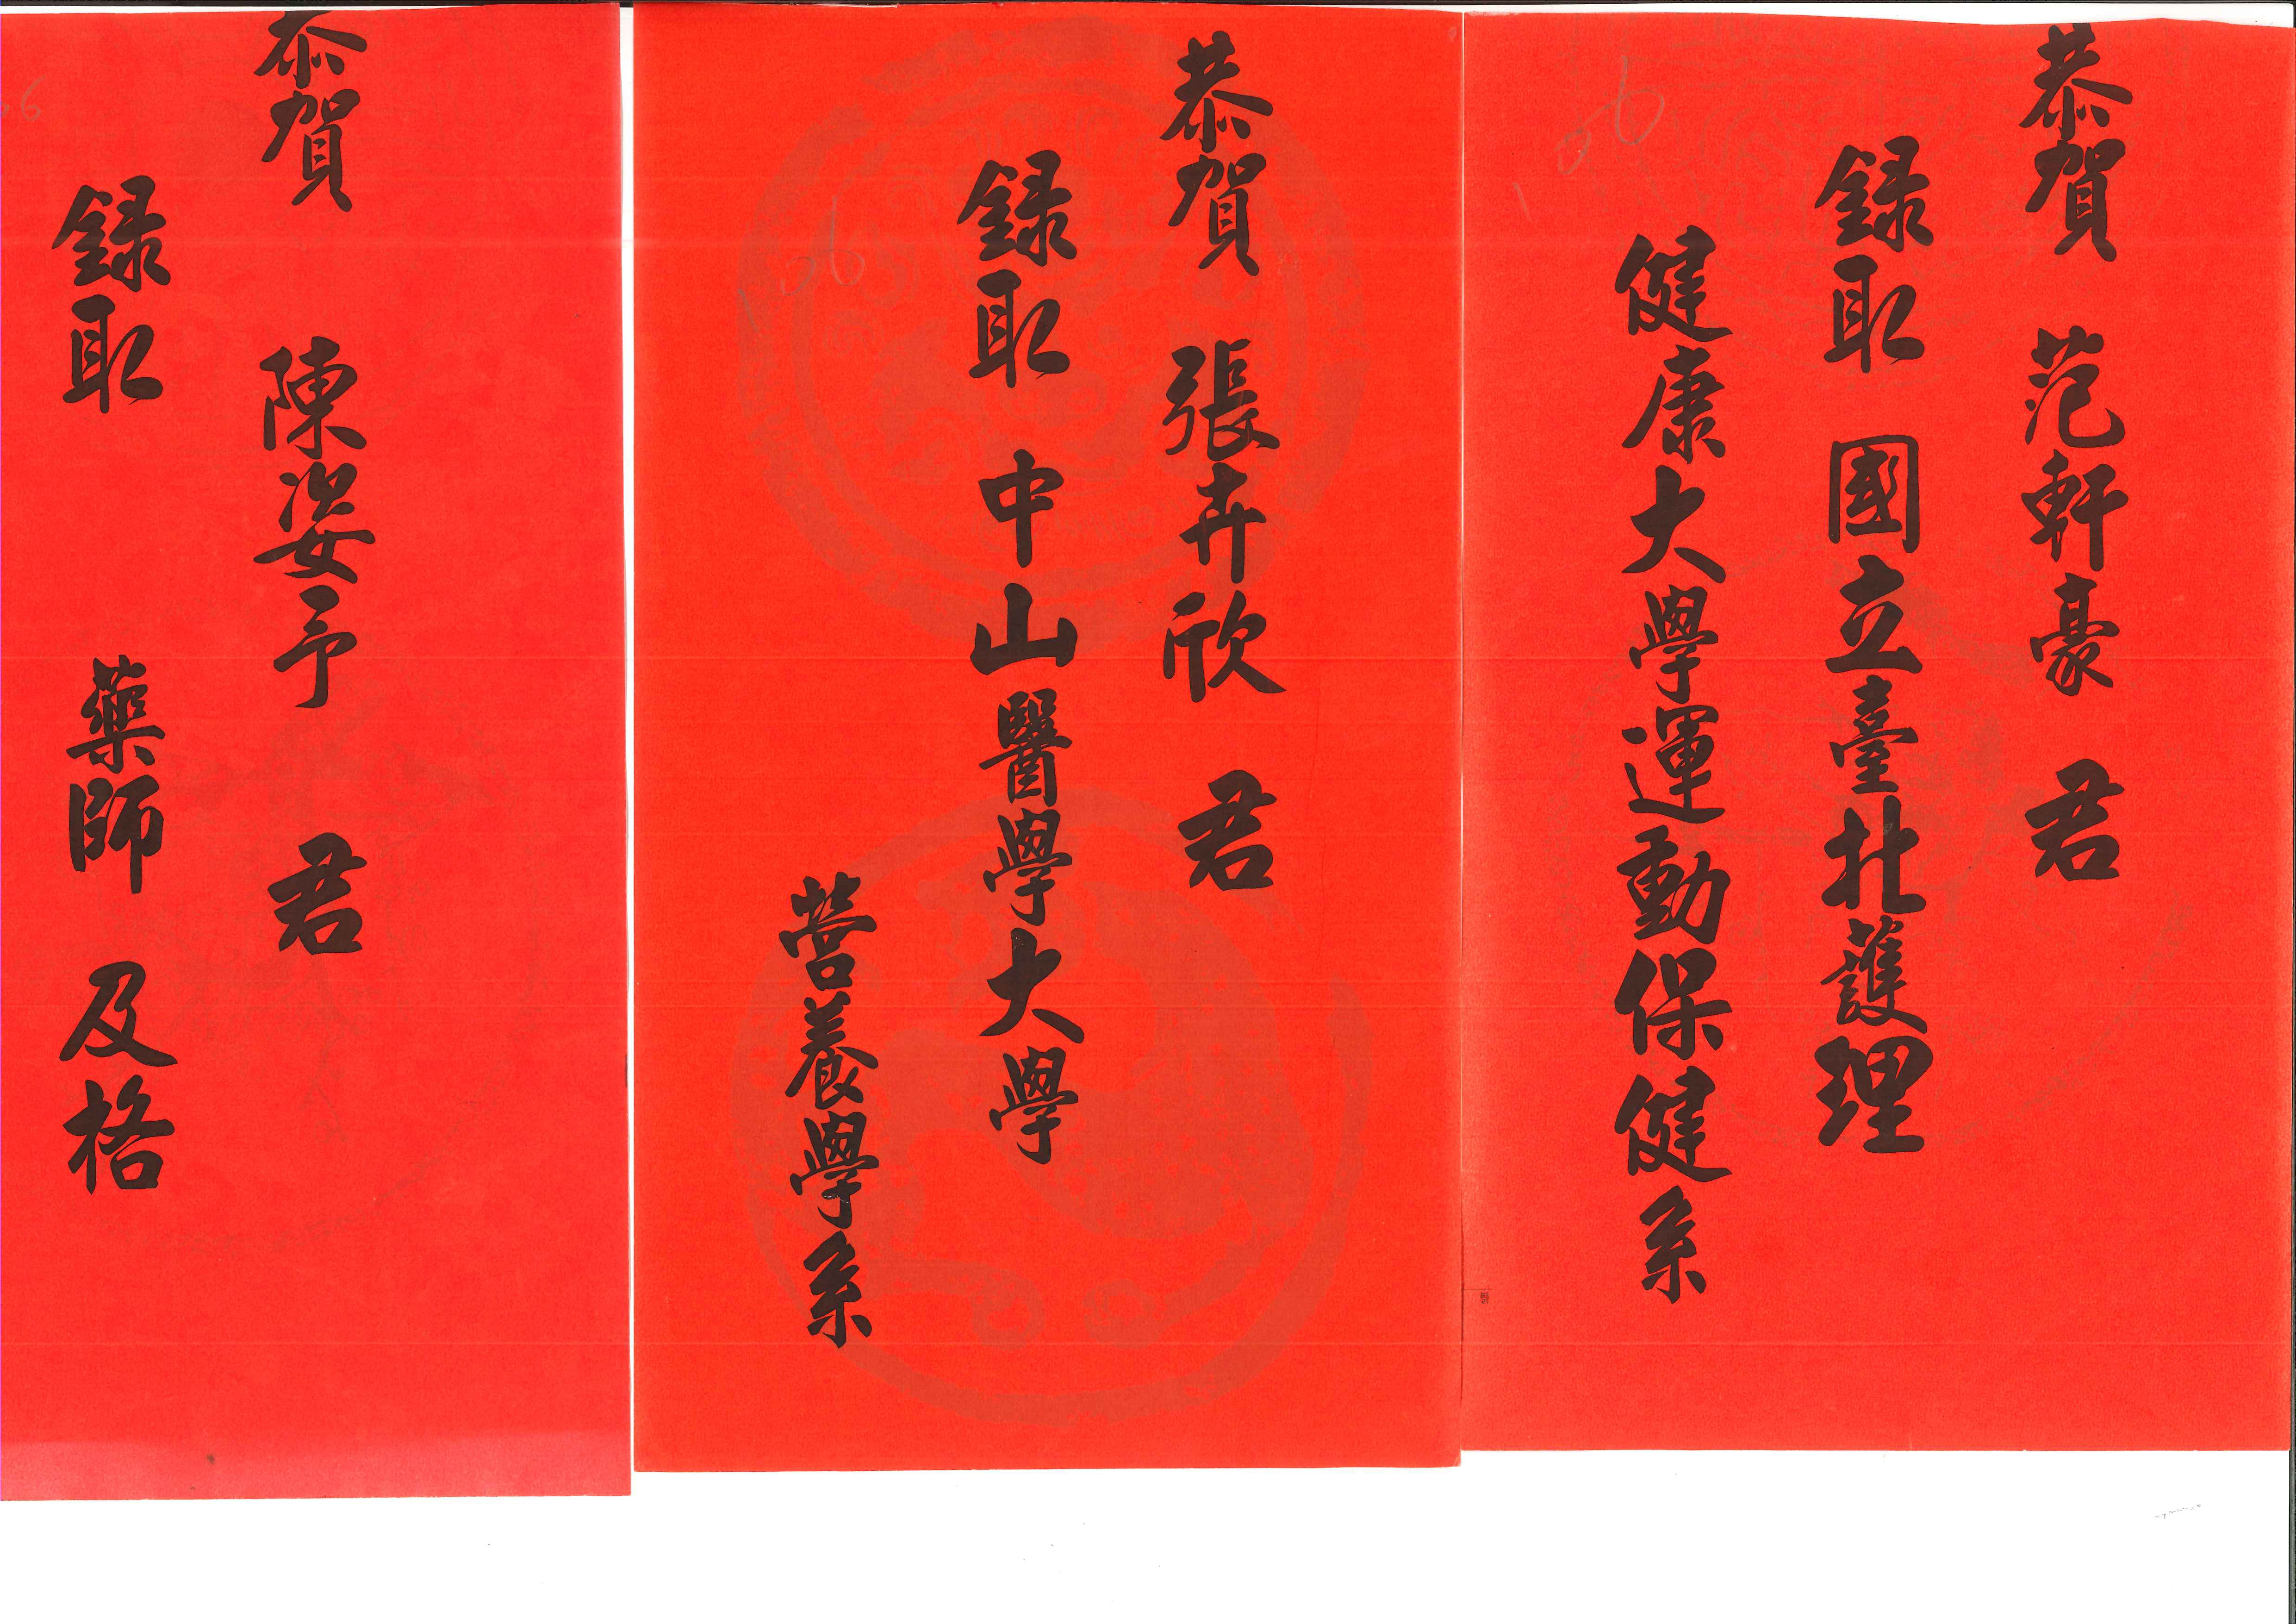 恭賀 范軒豪 君
錄取 國立臺北護理
健康大學運動保健系
106
恭賀 張卉欣 君
錄取 中山醫學大學
營養學系
106
恭賀 陳姿予 君
錄取 藥師 及格
06